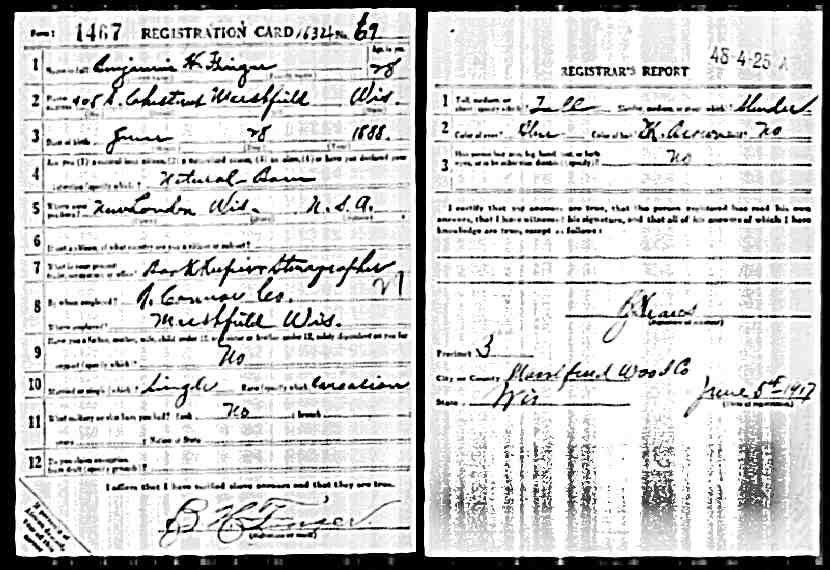 Form 1 1467 REGISTRATION CARD No. 69
Age, in yrs.
1 Name in full Benjamin H. 28
2 Home address 405 S. Chestnut Marshfield Wis.
3 Date of birth June 28 1888.
4 Are you (1) a natural-born citizen, (2) a naturalized citizen, (3) an alien, (4) or have you declared your
intention (specify which)? Natural Born
5 Where were you born? New London Wis. U.S.A.
6 If not a citizen, of what country are you a citizen or subject?
7 What is your present trade, occupation, or office? 
8 By whom employed? Co.
Where employed? Marshfield Wis.
9 Have you a father, mother, wife, child under 12, or a sister or brother under 12, solely dependent on you for
support (specify which)? No
10 Married or single (which)? Single Race (specify which)?
11 What military service have you had? Rank No branch
years Nation or State
12 Do you claim exemption from draft (specify grounds)?
I affirm that I have verified above answers and that they are true.
B H
(Signature or mark)
48-4-25 A
REGISTRAR'S REPORT
1 Tall, medium, or short (specify which)? Tall Slender, medium, or stout (which)? Slender
2 Color of eyes? Color of hair? Brown Bald? No
3 Has person lost arm, leg, hand, foot, or both eyes, or is he otherwise disabled (specify)? No
I certify that my answers are true, that the person registered has read his own
answers, that I have witnessed his signature, and that all of his answers of which I have
knowledge are true, except as follows:
(Signature of registrar)
Precinct 3
City or County Marshfield Wood Co
State Wis June 5th 1917
(Date of registration)